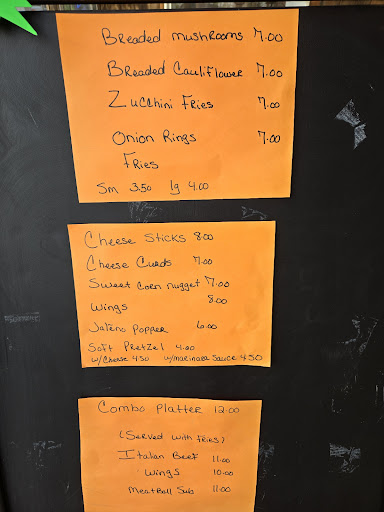 Breaded mushrooms 7.00
Breaded Cauliflower 7.00
Zucchini Fries 7.00
Onion Rings 7.00
Fries
Sm 3.50 lg 4.00
Cheese Sticks 8.00
Cheese Curds 7.00
Sweet Corn nugget 7.00
Wings 8.00
Jaleno Popper 6.00
Soft Pretzel 4.00
w/Cheese 4.50 w/marinara Sauce 4.50
Combo Platter 12.00
(Served with Fries)
Italian Beef 11.00
Wings 10.00
Meatball Sub 11.00